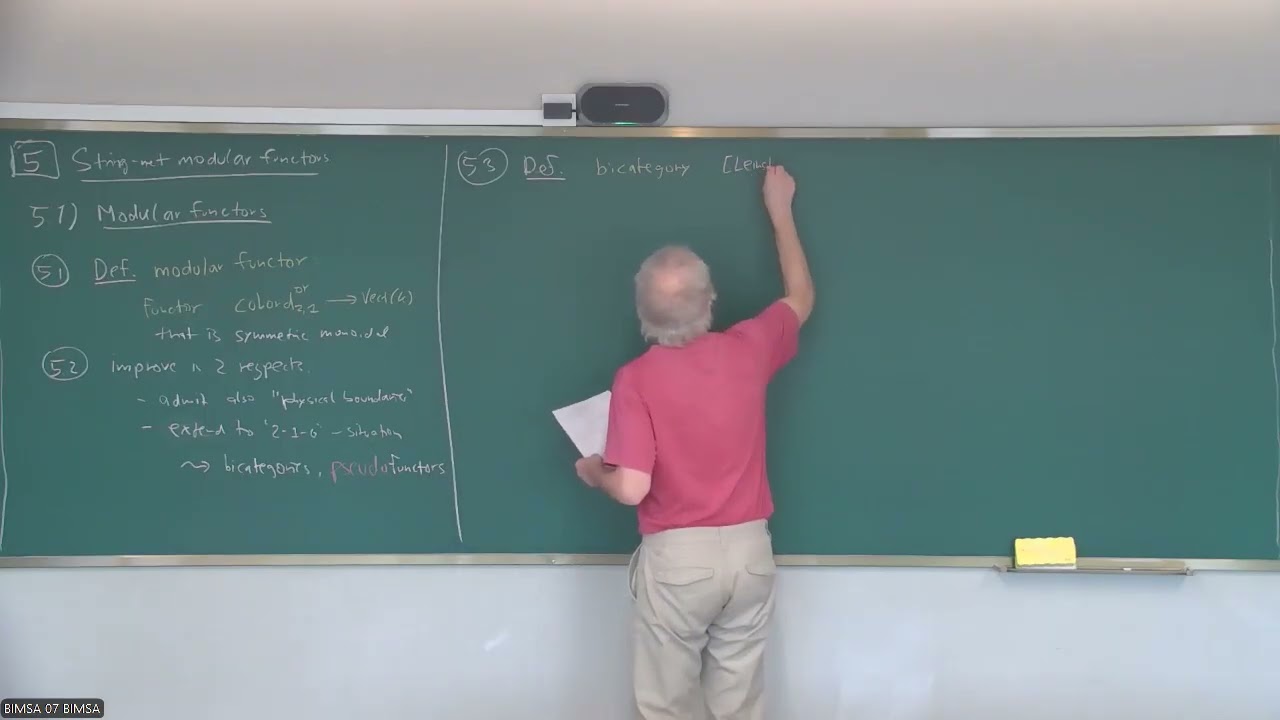 5 String-net modular functors
5.1) Modular functors
5.1 Def. modular functor
functor cobord 2,1 or → Vect(k)
that is symmetric monoidal
5.2 Improve in 2 respects.
- admit also "physical boundaries"
- extend to "2-1-0" - situation
⇝ bicategories, pseudofunctors
5.3 Def. bicategory [Leinst
BIMSA 07 BIMSA